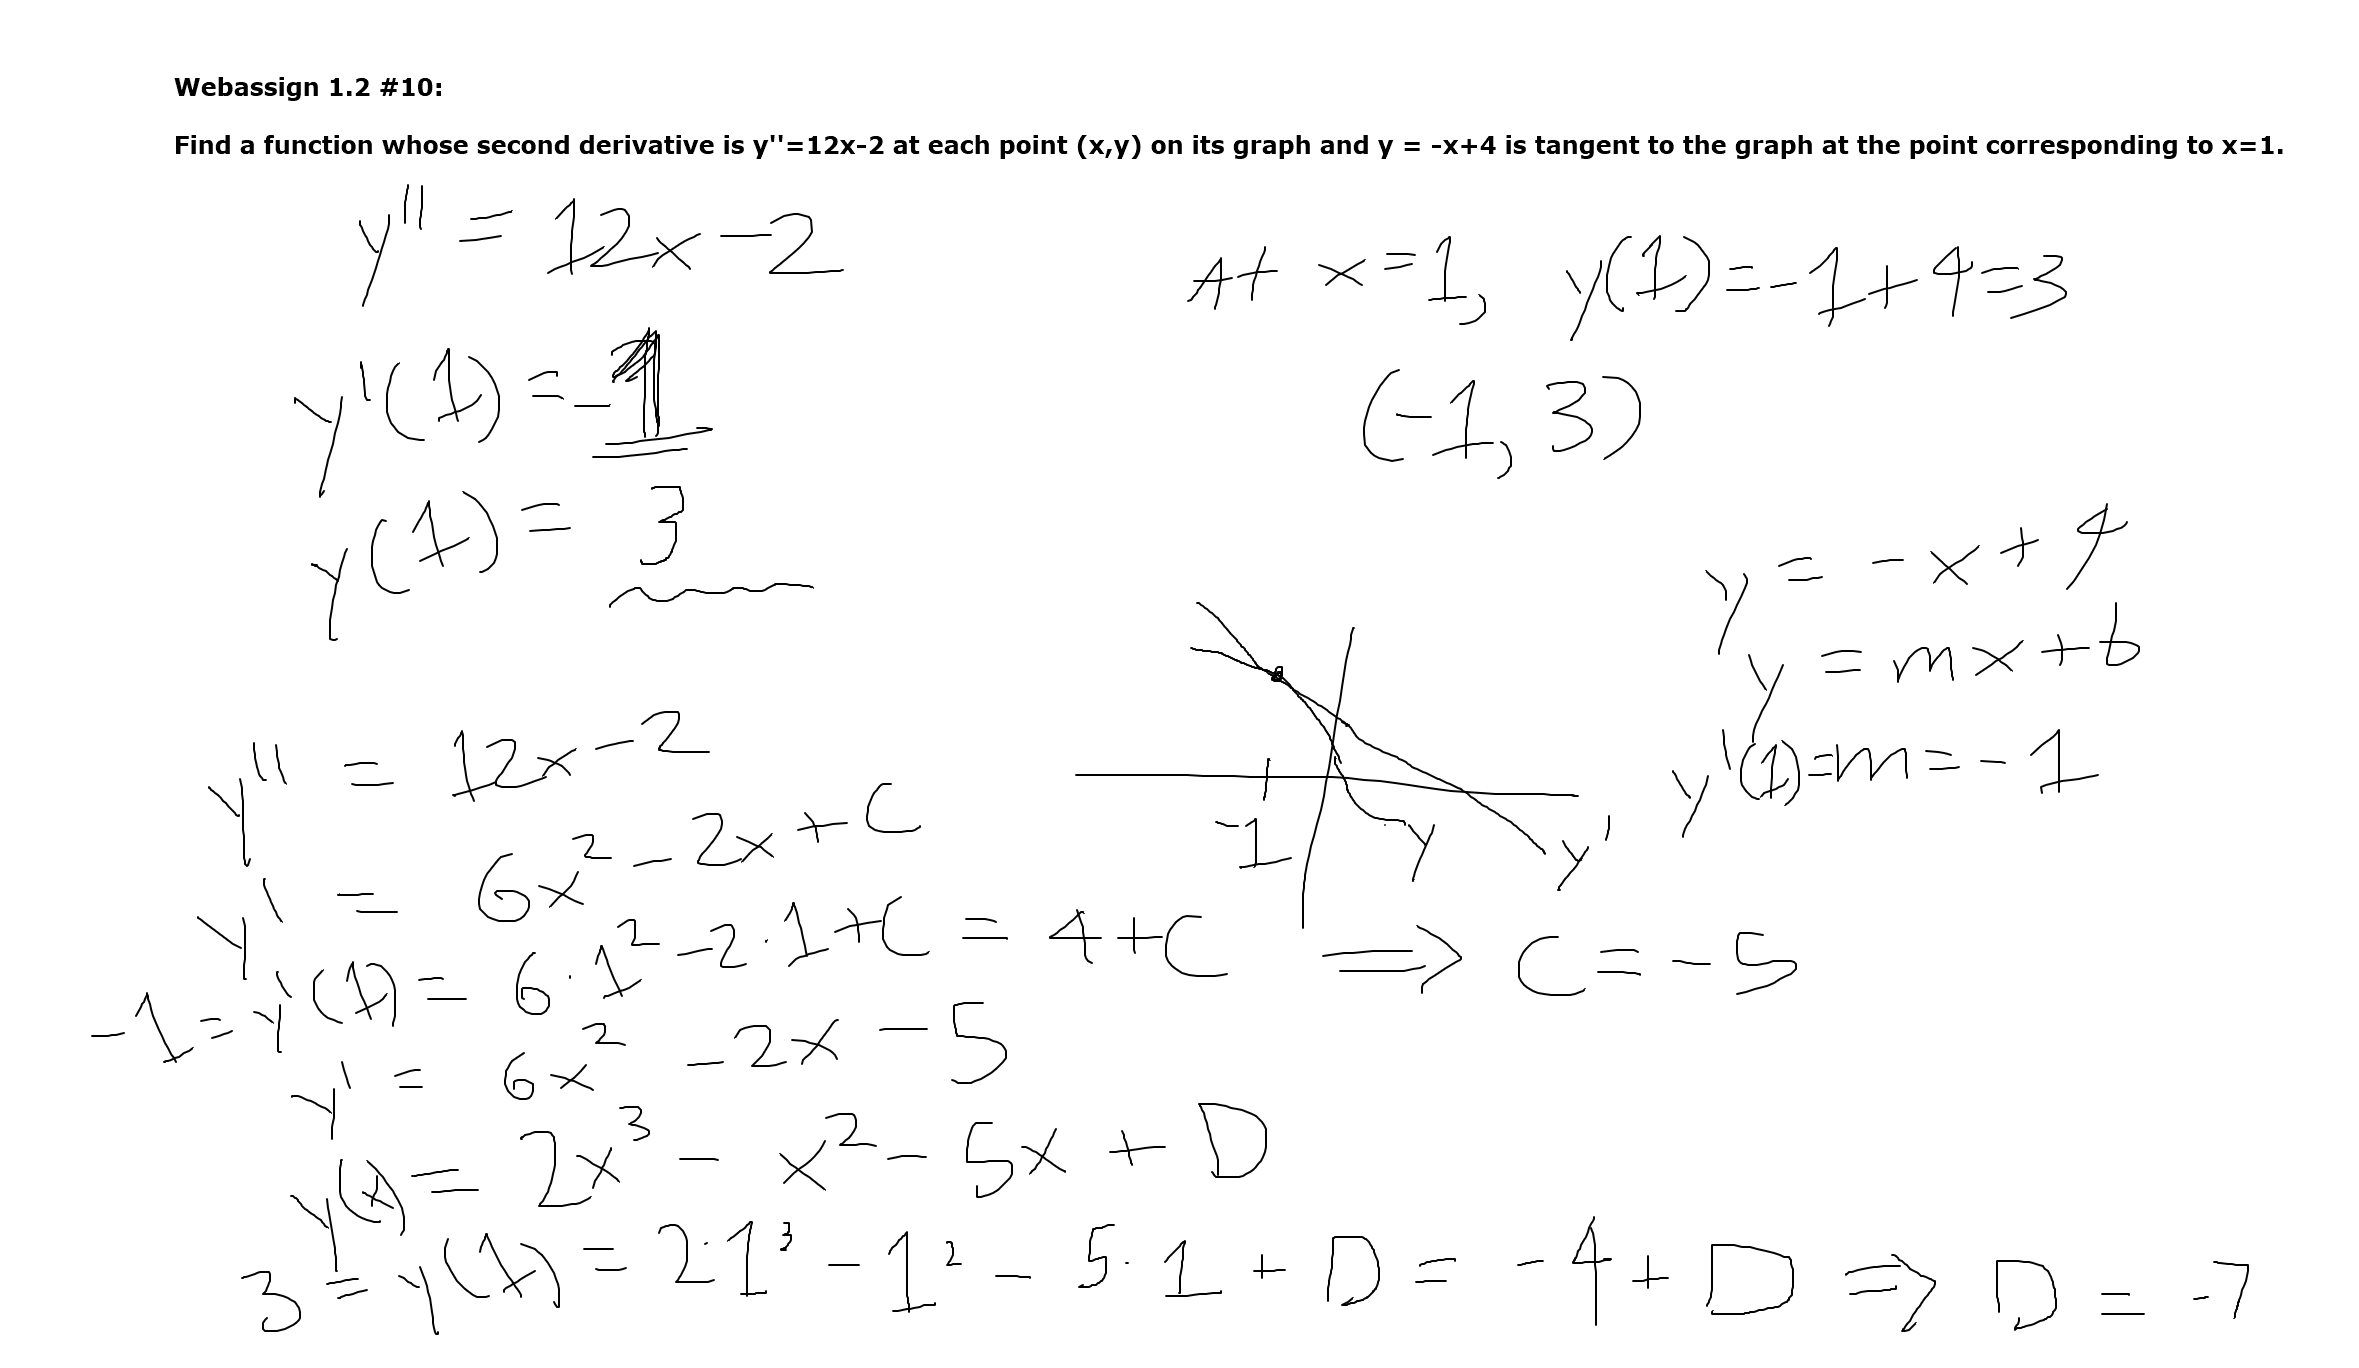 Webassign 1.2 #10:
Find a function whose second derivative is y''=12x-2 at each point (x,y) on its graph and y = -x+4 is tangent to the graph at the point corresponding to x=1.
y'' = 12x - 2
At x = 1, y(1) = -1 + 4 = 3
y'(1) = -1
(-1, 3)
y(1) = 3
y = -x + 4
y = mx + b
y'(1) = m = -1
-1
y
y'
y'' = 12x - 2
y' = 6x² - 2x + C
-1 = y'(1) = 6·1² - 2·1 + C = 4 + C ⇒ C = -5
y' = 6x² - 2x - 5
y(x) = 2x³ - x² - 5x + D
3 = y(1) = 2·1³ - 1² - 5·1 + D = -4 + D ⇒ D = -7